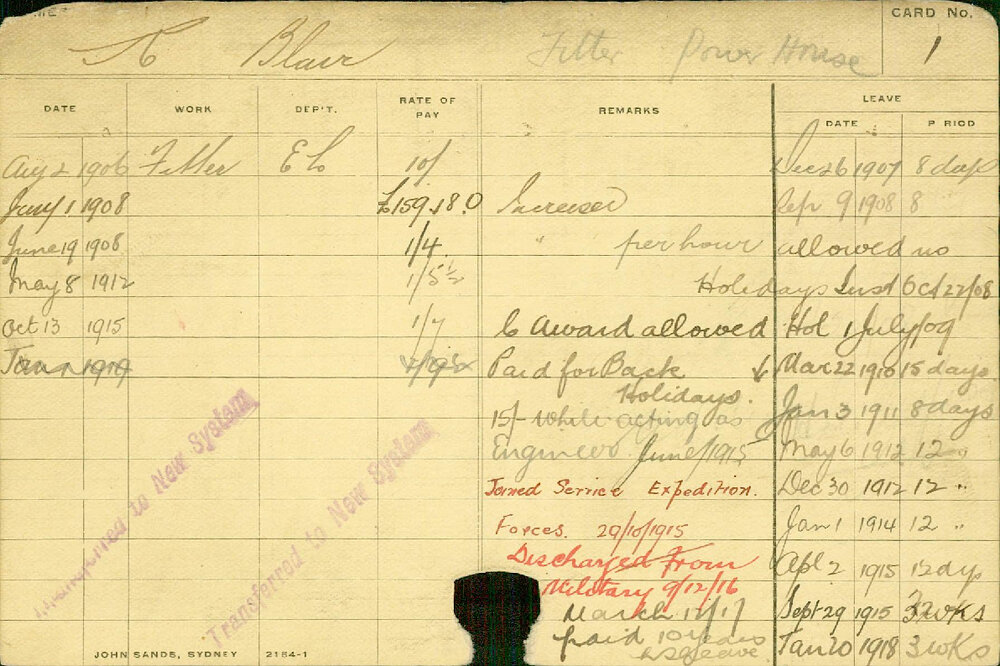 CARD No.
A Blair Fitter Power House 1
DATE WORK DEP'T. RATE OF PAY REMARKS LEAVE
DATE PERIOD
Aug 2 1906 Fitter EL 10/ Dec 26 1907 8 days
Jany 1 1908 £159.18.0 Increased Sep 9 1908 8
June 19 1908 1/4 " per hour allowed no
May 8 1912 1/5½ Holidays Inst Oct 22/08
Oct 13 1915 1/7 C Award allowed Hol 1 July/09
Jan 1 1919 Paid for Back Mar 22 1910 15 days
Holidays.
Jan 3 1911 8 days
15/- while acting as
Engineer June/1915 May 6 1912 12 "
Joined Service Expedition. Dec 30 1912 12 "
Forces. 29/10/1915 Jan 1 1914 12 "
Discharged from Apl 2 1915 12 dys
Military 9/12/16
March 17/17 Sept 29 1915 3 wks
paid 10 years
Leave Jan 20 1918 3 wks
Transferred to New System
Transferred to New System
JOHN SANDS, SYDNEY 2184-1